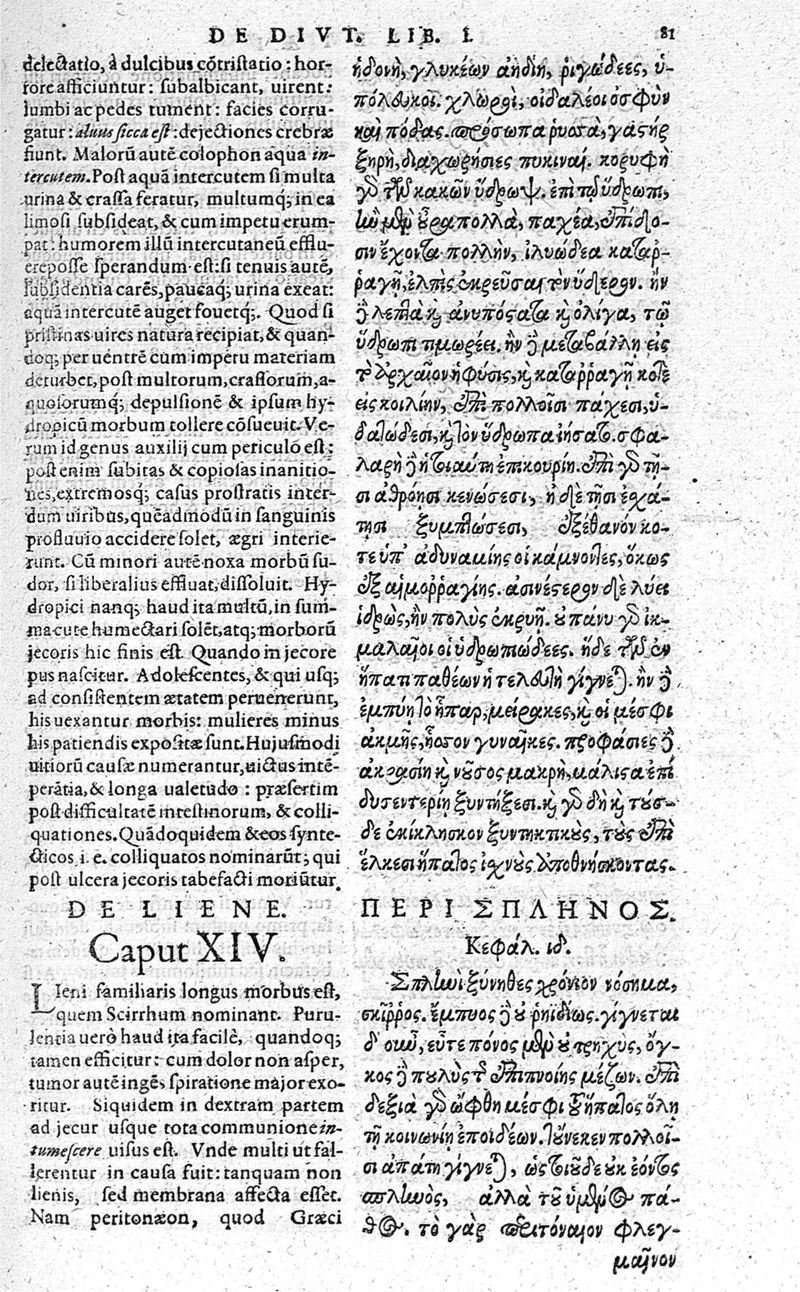 DE DIVT. LIB. I. 81
delectatio, à dulcibus cõtristatio: hor-
rore afficiuntur: subalbicant, uirent:
lumbi ac pedes tument: facies corru-
gatur: aluus sicca est: dejectiones crebræ
fiunt. Malorũ autẽ colophon aqua in-
tercutem. Post aquã intercutem si multa
urina & crassa feratur, multumq; in ea
limosi subsideat, & cum impetu erum-
pat: humorem illũ intercutaneũ efflu-
ere posse sperandum est: si tenuis autẽ,
subsidentia carẽs, paucaq; urina exeat:
aquã intercutẽ auget fouetq;. Quod si
pristinas uires natura recipiat, & quan-
doq; per uentrẽ cum impetu materiam
deturbet, post multorum, crassorum, a-
quosorumq; depulsionẽ & ipsum hy-
dropicũ morbum tollere cõsueuit. Ve-
rum id genus auxilij cum periculo est:
post enim subitas & copiosas inanitio-
nes, extremosq; casus prostratis inter-
dum uiribus, quẽadmodũ in sanguinis
profluuio accidere solet, ægri interie-
runt. Cũ minori autẽ noxa morbũ su-
dor, si liberalius effluat, dissoluit. Hy-
dropici nanq; haud ita multũ, in sum-
ma cute humectari solẽt, atq; morborũ
jecoris hic finis est. Quando in jecore
pus nascitur. Adolescentes, & qui usq;
ad consistentem ætatem peruenerunt,
his uexantur morbis: mulieres minus
his patiendis expositæ sunt. Hujusmodi
uitiorũ causæ numerantur, uictus intẽ-
perãtia, & longa ualetudo: præsertim
post difficultatẽ intestinorum, & colli-
quationes. Quãdoquidem & eos synte-
cticos i. e. colliquatos nominarũt; qui
post ulcera jecoris tabefacti moriũtur.
DE LIENE.
Caput XIV.
Lieni familiaris longus morbus est,
quem Scirrhum nominant. Puru-
lentia uerò haud ita facilè, quandoq;
tamen efficitur: cum dolor non asper,
tumor autẽ ingẽs, spiratione major exo-
ritur. Siquidem in dextram partem
ad jecur usque tota communione in-
tumescere uisus est. Vnde multi ut fal-
lerentur in causa fuit: tanquam non
lienis, sed membrana affecta esset.
Nam peritonæon, quod Græci
ἡδονὴ, γλυκέων ἀηδίη, ῥιγώδεες, ὑ-
πόλευκοι. χλωροὶ, οἰδαλέοι ὀσφὺν
καὶ πόδας. πρόσωπα ῥυσσὰ, γαστὴρ
ξηρὴ, διαχωρήσιες πυκιναί. κορυφὴ
γὸ τῶν κακῶν ὕδρωψ. ἐπὶ τῷ ὕδρωπι,
ἢν μὲν οὖρα πολλὰ, παχέα, ὑπόστα-
σιν ἔχοντα πολλὴν, ἰλυώδεα καταῤ-
ῥαγῇ, ἐλπὶς ἐκρεῦσαι τὸν ὕδερον. ἢν
δὲ λεπτὰ καὶ ἀνυπόστατα καὶ ὀλίγα, τῷ
ὕδρωπι τιμωρέει. ἢν δὲ μεταβάλλῃ εἰς
τὸ ἀρχαῖον ἡ φύσις, καὶ καταῤῥαγῇ κοτὲ
εἰς κοιλίην, ἐπὶ πολλοῖσι πάχεσι, ὑ-
δατώδεσι, καὶ τὸν ὕδρωπα ἰήσατο. σφα-
λερὴ δὲ ἡ τοιαύτη ἐπικουρίη. ἐπὶ γὸ τῇ-
σι ἀθρόῃσι κενώσεσι, ἠδὲ τῇσι ἐσχά-
τῃσι ξυμπτώσεσι, ἐξέθανόν κο-
τε ὑπ' ἀδυναμίης οἱ κάμνοντες, ὅκως
ἐξ αἱμοῤῥαγίης. ἀσινέστερον δὲ λύει
ἱδρὼς, ἢν πολὺς ἐκρυῇ. οὐ πάνυ γὸ ἰκ-
μαλαῖοι οἱ ὑδρωπιώδεες. ἥδε τῶν ἐν
ἥπατι παθέων ἡ τελευτὴ γίγνεται. ἢν δὲ
ἐμπύηται τὸ ἧπαρ, μείρακες, καὶ οἱ μέσφι
ἀκμῆς, ἧσσον γυναῖκες. προφάσιες δὲ
ἀκρασίη καὶ νοῦσος μακρὴ, μάλιστα ἐπὶ
δυσεντερίῃ ξυντήξεσι. καὶ γὸ δὴ καὶ τούσ-
δε ἐκίκλησκον ξυντηκτικοὺς, τοὺς ἐπὶ
ἕλκεσι ἥπατος ἰχνοὺς ἀποθνήσκοντας.
ΠΕΡΙ ΣΠΛΗΝΟΣ.
Κεφάλ. ιδ.
Σπληνὶ ξύνηθες χρόνιον νόσημα,
σκίῤῥος. ἔμπυος δὲ οὐ ῥηϊδίως. γίγνεται
δ' οὖν, εὖτε πόνος μὲν οὐ τρηχὺς, ὄγ-
κος δὲ πουλὺς τῆς ἐπιπνοίης μέζων. ἐπὶ
δεξιὰ γὸ ὤφθη μέσφι τοῦ ἥπατος ὅλῃ
τῇ κοινωνίῃ ἐποιδέων. τοὔνεκεν πολλοῖ-
σι ἀπάτη γίγνεται, ὡς τοῦδε οὐκ ἐόντος
σπληνὸς, ἀλλὰ τοῦ ὑμένος πά-
θος. τὸ γὰρ περιτόναιον φλεγ-
μαῖνον